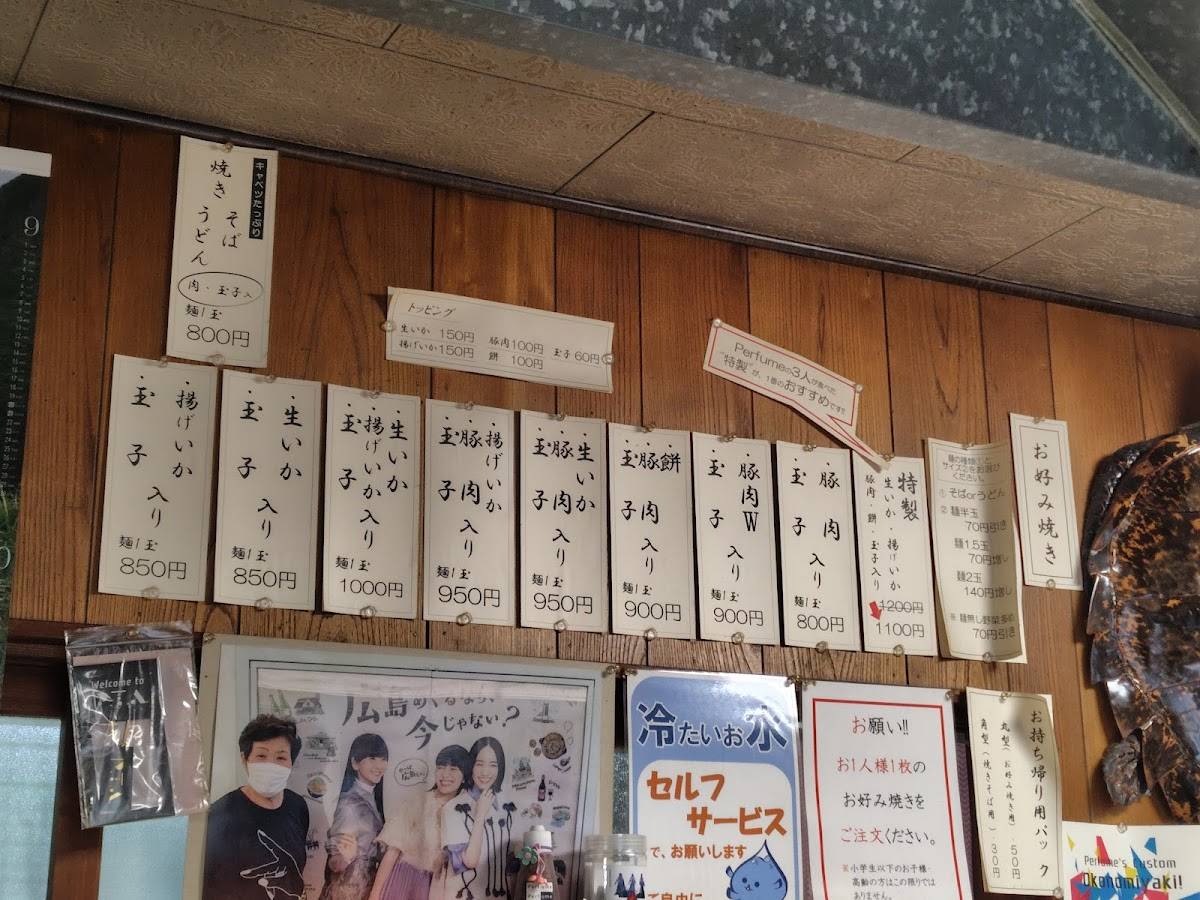 お好み焼き
麺の種類①と
サイズ②をお選び
ください。
① そばorうどん
② 麺半玉
70円引き
麺1.5玉
70円増し
麺2玉
140円増し
※ 麺無し野菜多め
70円引き
特製
生いか・揚げいか
豚肉・餅・玉子入り
1200円
1100円
Perfumeの3人が食べた
"特製"が、1番のおすすめです!!
豚肉
玉子 入り
麺1玉
800円
豚肉W
玉子 入り
麺1玉
900円
餅
豚肉
玉子 入り
麺1玉
900円
生いか
豚肉
玉子 入り
麺1玉
950円
揚げいか
豚肉
玉子 入り
麺1玉
950円
生いか
揚げいか
玉子 入り
麺1玉
1000円
生いか
玉子 入り
麺1玉
850円
揚げいか
玉子 入り
麺1玉
850円
トッピング
生いか 150円
揚げいか 150円
豚肉 100円
餅 100円
玉子 60円
キャベツたっぷり
焼き そば
うどん
肉・玉子入
麺1玉
800円
9
Welcome to
広島めぐるなら、
今じゃない?
冷たいお水
セルフ
サービス
で、お願いします
ご自由に
お願い!!
お1人様1枚の
お好み焼きを
ご注文ください。
※小学生以下のお子様・
高齢の方はこの限りでは
ありません。
お持ち帰り用パック
丸型(お好み焼き用) 50円
角型(焼きそば用) 30円
Perfume's Custom
Okonomiyaki!